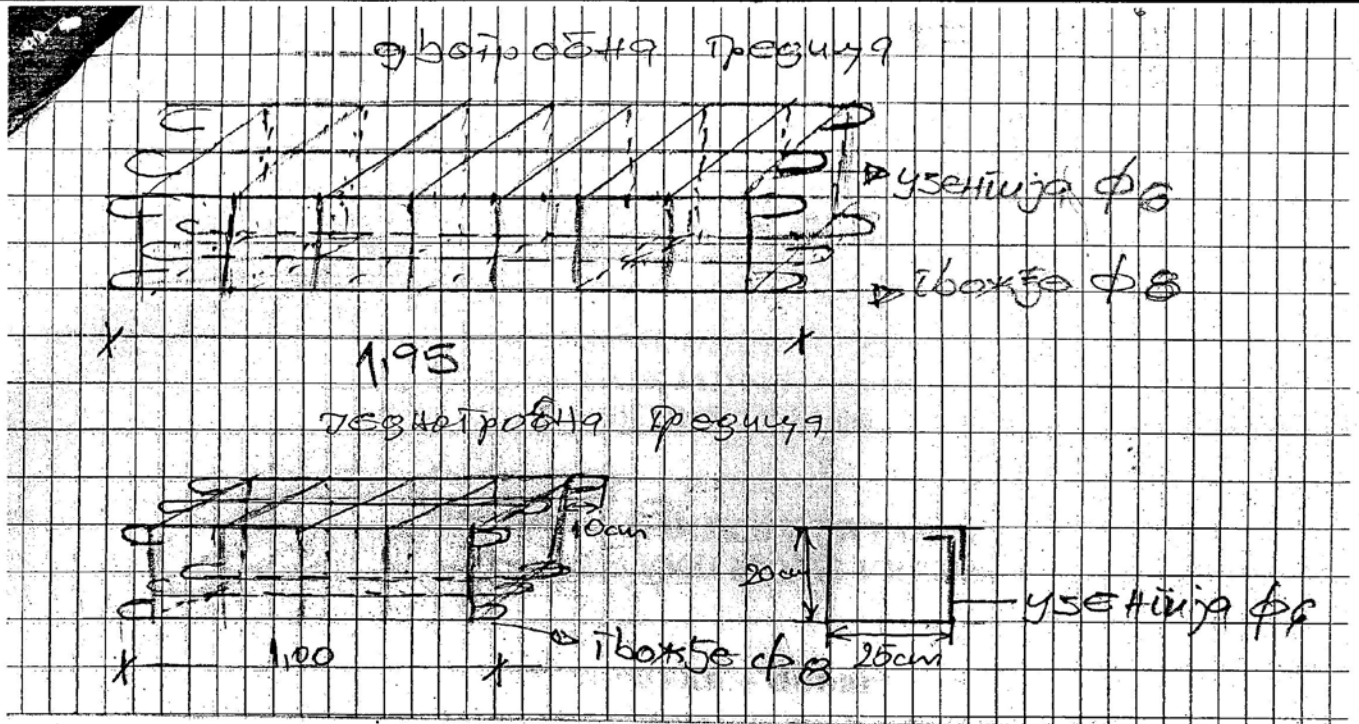 двотробна гредица
узенгија ф6
гвожђе ф8
1,95
једнотробна гредица
10cm
20cm
узенгија ф6
гвожђе ф8
25cm
1,00